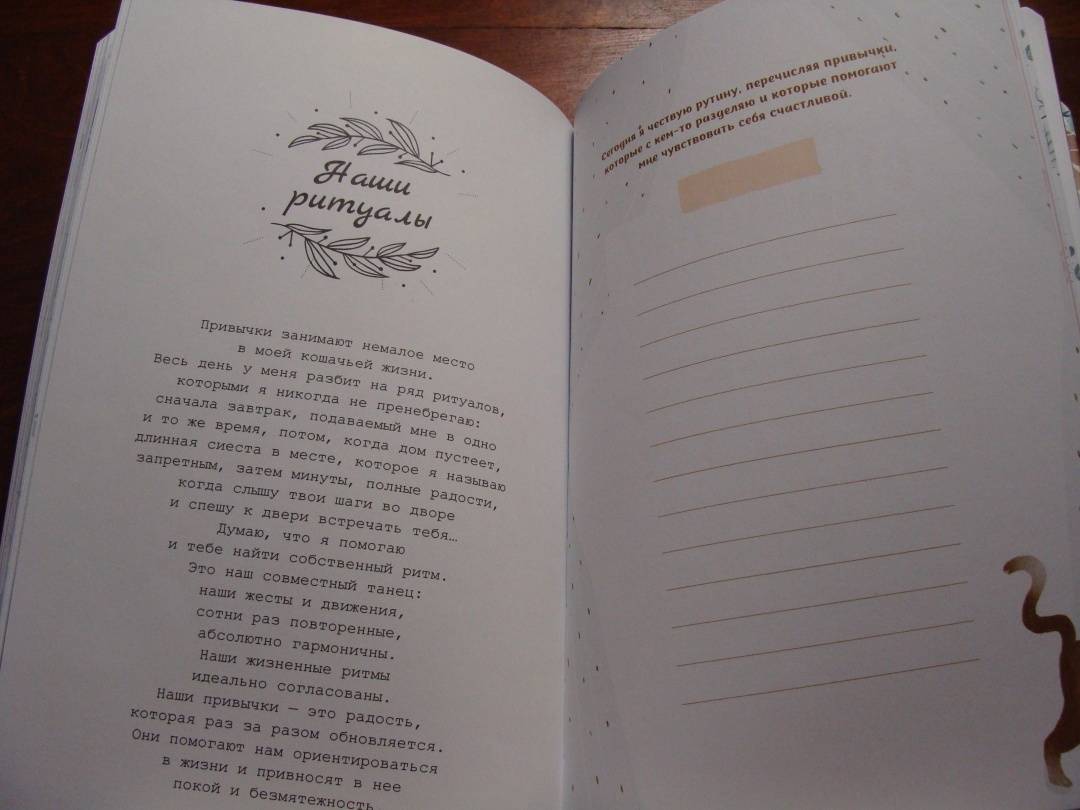 Наши
ритуалы
Привычки занимают немалое место
в моей кошачьей жизни.
Весь день у меня разбит на ряд ритуалов,
которыми я никогда не пренебрегаю:
сначала завтрак, подаваемый мне в одно
и то же время, потом, когда дом пустеет,
длинная сиеста в месте, которое я называю
запретным, затем минуты, полные радости,
когда слышу твои шаги во дворе
и спешу к двери встречать тебя…
Думаю, что я помогаю
и тебе найти собственный ритм.
Это наш совместный танец:
наши жесты и движения,
сотни раз повторенные,
абсолютно гармоничны.
Наши жизненные ритмы
идеально согласованы.
Наши привычки — это радость,
которая раз за разом обновляется.
Они помогают нам ориентироваться
в жизни и привносят в нее
покой и безмятежность
Сегодня я чествую рутину, перечисляя привычки,
которые с кем-то разделяю и которые помогают
мне чувствовать себя счастливой.